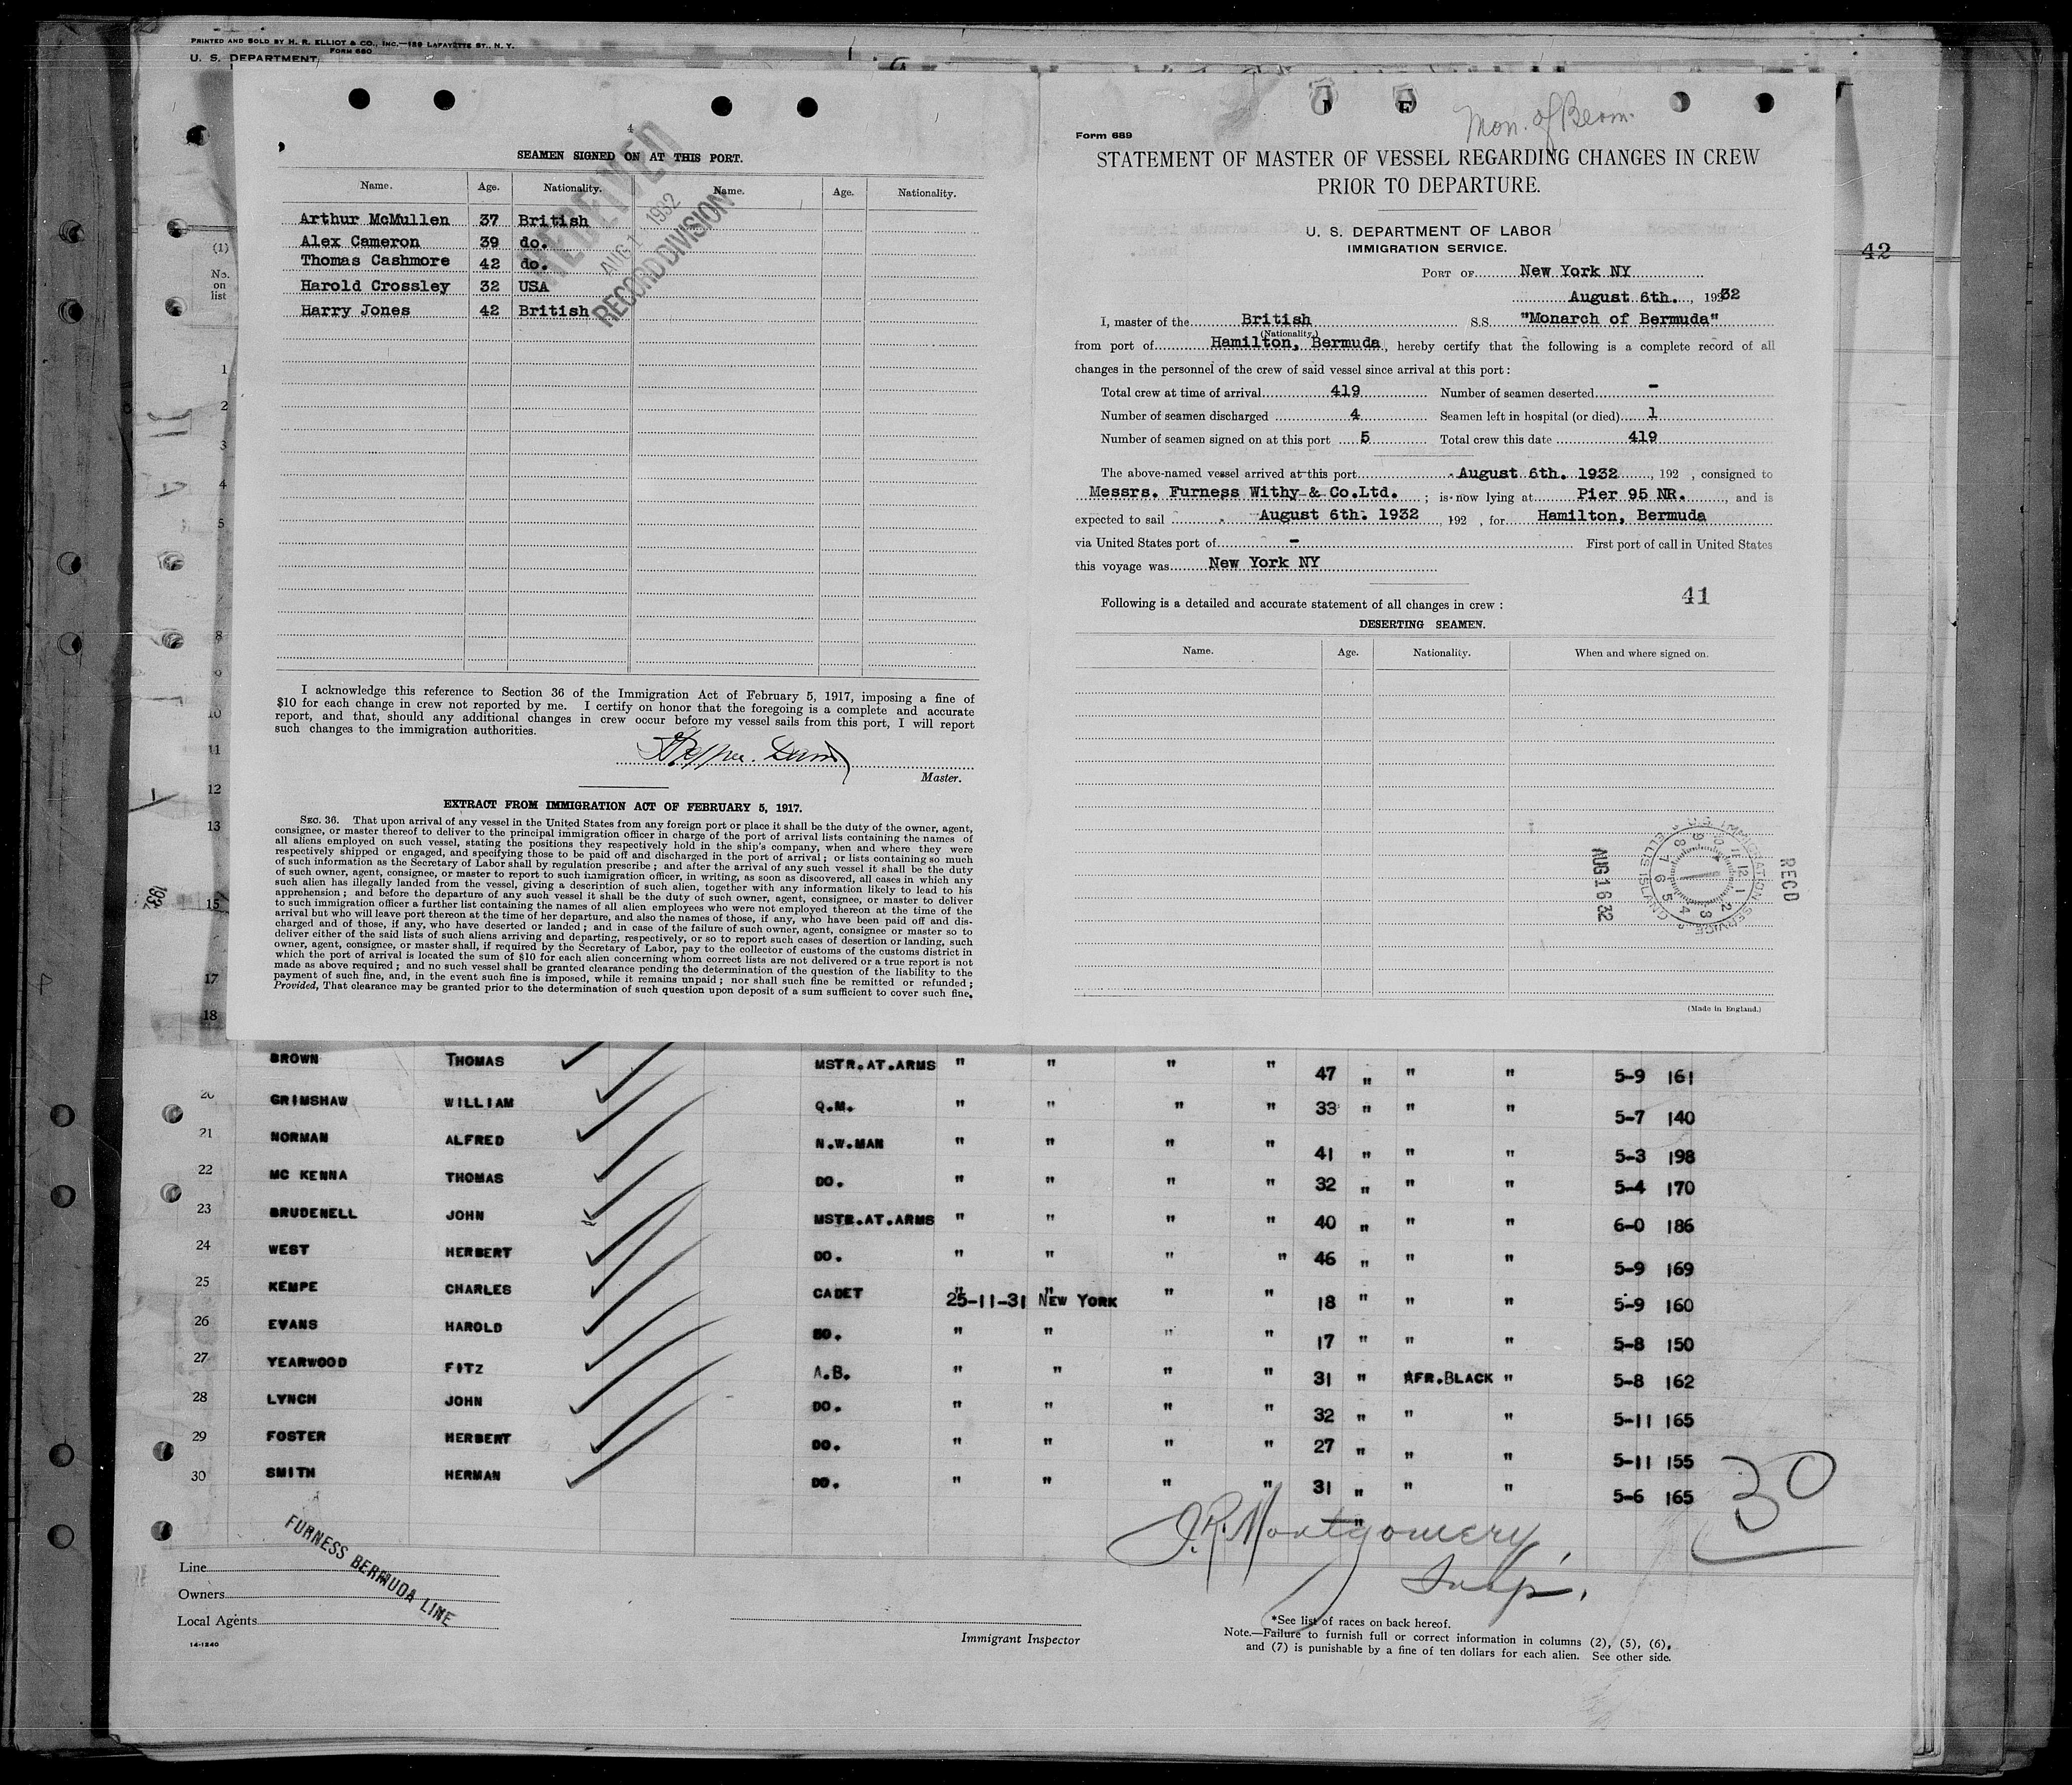 PRINTED AND SOLD BY H. R. ELLIOT & CO., INC.—139 LAFAYETTE ST., N. Y.
FORM 680
U. S. DEPARTMENT
4
SEAMEN SIGNED ON AT THIS PORT.
Name. Age. Nationality. Name. Age. Nationality.
Arthur McMullen 37 British
Alex Cameron 39 do.
Thomas Cashmore 42 do.
Harold Crossley 32 USA
Harry Jones 42 British
RECEIVED
AUG 1 1932
RECORD DIVISION
I acknowledge this reference to Section 36 of the Immigration Act of February 5, 1917, imposing a fine of
$10 for each change in crew not reported by me. I certify on honor that the foregoing is a complete and accurate
report, and that, should any additional changes in crew occur before my vessel sails from this port, I will report
such changes to the immigration authorities.
Master.
EXTRACT FROM IMMIGRATION ACT OF FEBRUARY 5, 1917.
SEC. 36. That upon arrival of any vessel in the United States from any foreign port or place it shall be the duty of the owner, agent,
consignee, or master thereof to deliver to the principal immigration officer in charge of the port of arrival lists containing the names of
all aliens employed on such vessel, stating the positions they respectively hold in the ship's company, when and where they were
respectively shipped or engaged, and specifying those to be paid off and discharged in the port of arrival; or lists containing so much
of such information as the Secretary of Labor shall by regulation prescribe; and after the arrival of any such vessel it shall be the duty
of such owner, agent, consignee, or master to report to such immigration officer, in writing, as soon as discovered, all cases in which any
such alien has illegally landed from the vessel, giving a description of such alien, together with any information likely to lead to his
apprehension; and before the departure of any such vessel it shall be the duty of such owner, agent, consignee, or master to deliver
to such immigration officer a further list containing the names of all alien employees who were not employed thereon at the time of the
arrival but who will leave port thereon at the time of her departure, and also the names of those, if any, who have been paid off and dis-
charged and of those, if any, who have deserted or landed; and in case of the failure of such owner, agent, consignee or master so to
deliver either of the said lists of such aliens arriving and departing, respectively, or so to report such cases of desertion or landing, such
owner, agent, consignee, or master shall, if required by the Secretary of Labor, pay to the collector of customs of the customs district in
which the port of arrival is located the sum of $10 for each alien concerning whom correct lists are not delivered or a true report is not
made as above required; and no such vessel shall be granted clearance pending the determination of the question of the liability to the
payment of such fine, and, in the event such fine is imposed, while it remains unpaid; nor shall such fine be remitted or refunded;
Provided, That clearance may be granted prior to the determination of such question upon deposit of a sum sufficient to cover such fine.
Mon. of Berm.
Form 689
STATEMENT OF MASTER OF VESSEL REGARDING CHANGES IN CREW
PRIOR TO DEPARTURE.
U. S. DEPARTMENT OF LABOR
IMMIGRATION SERVICE.
PORT OF New York NY
August 6th., 1932
I, master of the British S.S. "Monarch of Bermuda"
(Nationality.)
from port of Hamilton, Bermuda, hereby certify that the following is a complete record of all
changes in the personnel of the crew of said vessel since arrival at this port:
Total crew at time of arrival 419 Number of seamen deserted -
Number of seamen discharged 4 Seamen left in hospital (or died) 1
Number of seamen signed on at this port 5 Total crew this date 419
The above-named vessel arrived at this port August 6th. 1932, 192 , consigned to
Messrs. Furness Withy & Co.Ltd. ; is now lying at Pier 95 NR., and is
expected to sail August 6th. 1932, 192 , for Hamilton, Bermuda
via United States port of - First port of call in United States
this voyage was New York NY
Following is a detailed and accurate statement of all changes in crew:
41
DESERTING SEAMEN.
Name. Age. Nationality. When and where signed on.
AUG 16 32
U.S. IMMIGRATION SERVICE
ELLIS ISLAND
RECD
(Made in England.)
42
(1)
No.
on
list
1
2
3
4
5
8
9
10
11
12
13
15
17
18
1932
BROWN THOMAS MSTR.AT.ARMS " " " " 47 " " " 5-9 161
20 GRIMSHAW WILLIAM Q.M. " " " " 33 " " " 5-7 140
21 NORMAN ALFRED N.W.MAN " " " " 41 " " " 5-3 198
22 MC KENNA THOMAS DO. " " " " 32 " " " 5-4 170
23 BRUDENELL JOHN MSTR.AT.ARMS " " " " 40 " " " 6-0 186
24 WEST HERBERT DO. " " " " 46 " " " 5-9 169
25 KEMPE CHARLES CADET 25-11-31 NEW YORK " " 18 " " " 5-9 160
26 EVANS HAROLD DO. " " " " 17 " " " 5-8 150
27 YEARWOOD FITZ A.B. " " " " 31 " AFR.BLACK " 5-8 162
28 LYNCH JOHN DO. " " " " 32 " " " 5-11 165
29 FOSTER HERBERT DO. " " " " 27 " " " 5-11 155
30 SMITH HERMAN DO. " " " " 31 " " " 5-6 165
30
J.R. Montgomery,
Insp.
Line
Owners
Local Agents
FURNESS BERMUDA LINE
14-1240
Immigrant Inspector
*See list of races on back hereof.
Note.—Failure to furnish full or correct information in columns (2), (5), (6),
and (7) is punishable by a fine of ten dollars for each alien. See other side.